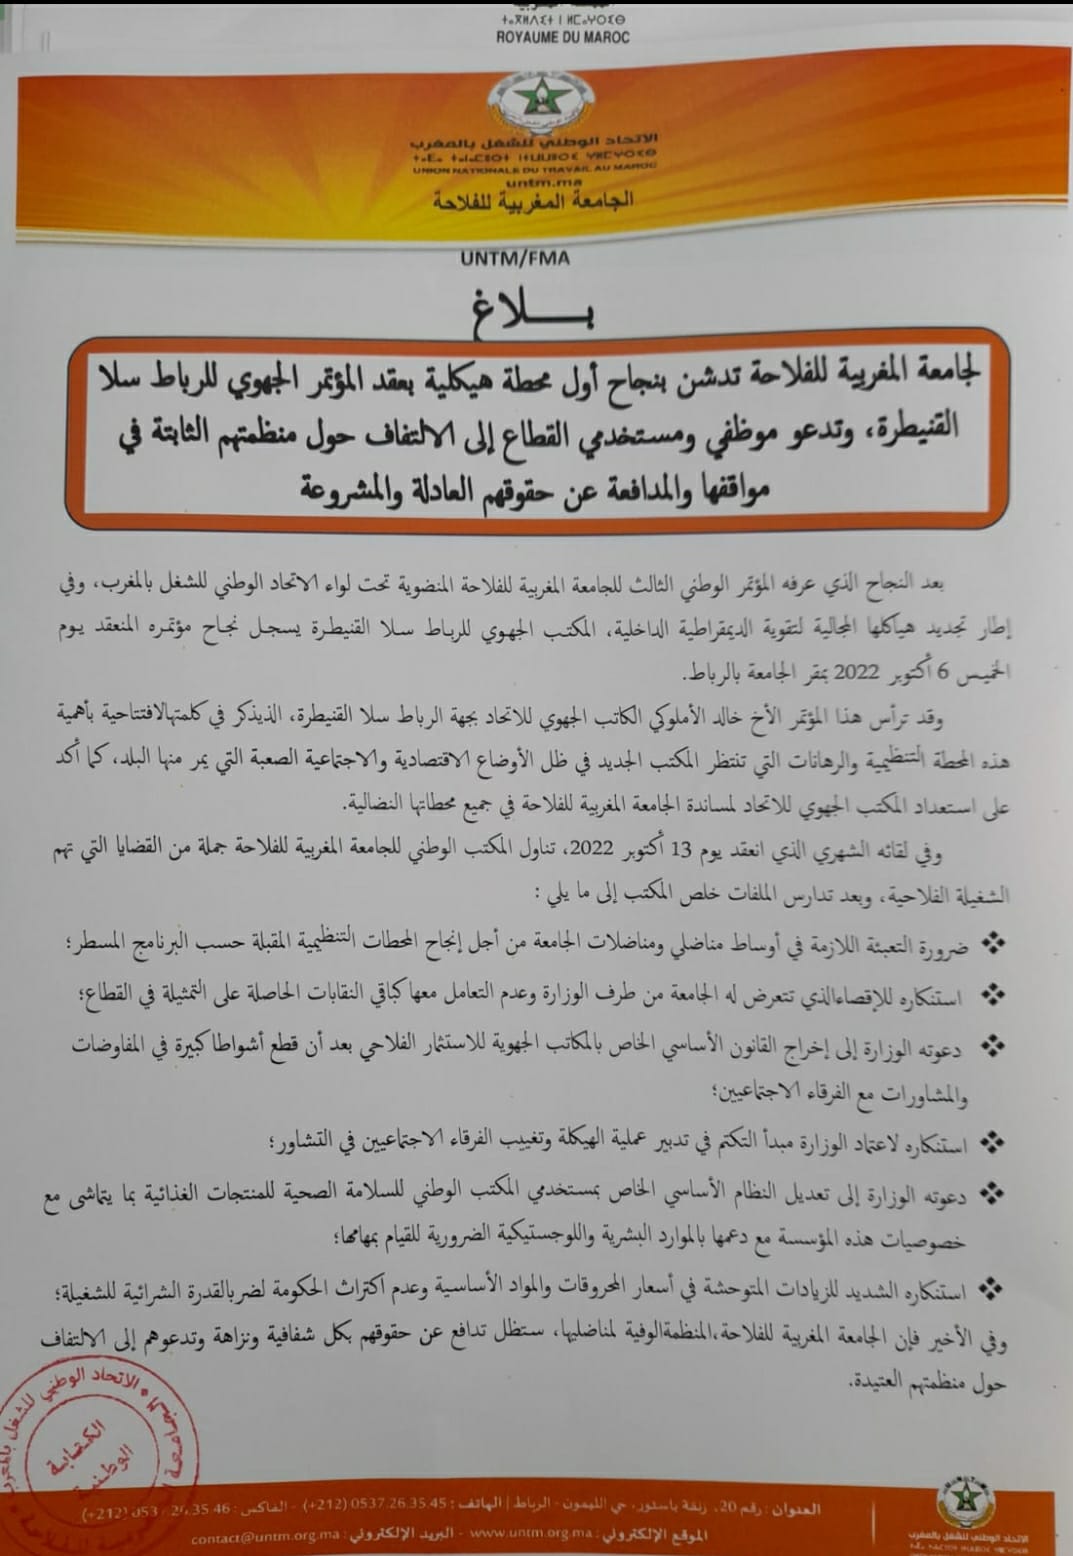 ⵜⴰⴳⵍⴷⵉⵜ ⵏ ⵍⵎⵖⵔⵉⴱ
ROYAUME DU MAROC
الاتحاد الوطني للشغل بالمغرب
UNION NATIONALE DU TRAVAIL AU MAROC
untm.ma
الجامعة المغربية للفلاحة
UNTM/FMA
بـــلاغ
لجامعة المغربية للفلاحة تدشن بنجاح أول محطة هيكلية بعقد المؤتمر الجهوي للرباط سلا
القنيطرة، وتدعو موظفي ومستخدمي القطاع إلى الالتفاف حول منظمتهم الثابتة في
مواقفها والمدافعة عن حقوقهم العادلة والمشروعة
بعد النجاح الذي عرفه المؤتمر الوطني الثالث للجامعة المغربية للفلاحة المنضوية تحت لواء الاتحاد الوطني للشغل بالمغرب، وفي
إطار تجديد هياكلها المجالية لتقوية الديمقراطية الداخلية، المكتب الجهوي للرباط سلا القنيطرة يسجل نجاح مؤتمره المنعقد يوم
الخميس 6 أكتوبر 2022 بمقر الجامعة بالرباط.
وقد ترأس هذا المؤتمر الأخ خالد الأملوكي الكاتب الجهوي للاتحاد بجهة الرباط سلا القنيطرة، الذيذكر في كلمتهالافتتاحية بأهمية
هذه المحطة التنظيمية والرهانات التي تنتظر المكتب الجديد في ظل الأوضاع الاقتصادية والاجتماعية الصعبة التي يمر منها البلد، كما أكد
على استعداد المكتب الجهوي للاتحاد لمساندة الجامعة المغربية للفلاحة في جميع محطاتها النضالية.
وفي لقائه الشهري الذي انعقد يوم 13 أكتوبر 2022، تناول المكتب الوطني للجامعة المغربية للفلاحة جملة من القضايا التي تهم
الشغيلة الفلاحية، وبعد تدارس الملفات خلص المكتب إلى ما يلي :
❖ ضرورة التعبئة اللازمة في أوساط مناضلي ومناضلات الجامعة من أجل إنجاح المحطات التنظيمية المقبلة حسب البرنامج المسطر؛
❖ استنكاره للإقصاءالذي تتعرض له الجامعة من طرف الوزارة وعدم التعامل معها كباقي النقابات الحاصلة على التمثيلة في القطاع؛
❖ دعوته الوزارة إلى إخراج القانون الأساسي الخاص بالمكاتب الجهوية للاستثمار الفلاحي بعد أن قطع أشواطا كبيرة في المفاوضات
والمشاورات مع الفرقاء الاجتماعيين؛
❖ استنكاره لاعتماد الوزارة مبدأ التكتم في تدبير عملية الهيكلة وتغييب الفرقاء الاجتماعيين في التشاور؛
❖ دعوته الوزارة إلى تعديل النظام الأساسي الخاص بمستخدمي المكتب الوطني للسلامة الصحية للمنتجات الغذائية بما يتماشى مع
خصوصيات هذه المؤسسة مع دعمها بالموارد البشرية واللوجستيكية الضرورية للقيام بمهامها؛
❖ استنكاره الشديد للزيادات المتوحشة في أسعار المحروقات والمواد الأساسية وعدم اكتراث الحكومة لضربالقدرة الشرائية للشغيلة؛
وفي الأخير فإن الجامعة المغربية للفلاحة،المنظمةالوفية لمناضليها، ستظل تدافع عن حقوقهم بكل شفافية ونزاهة وتدعوهم إلى الالتفاف
حول منظمتهم العتيدة.
الاتحاد الوطني للشغل بالمغرب
الكتابة
الوطنية
العنوان : رقم 20، زنقة باستور، حي الليمون - الرباط | الهاتف : 0537.26.35.45 (212+) - الفاكس : 26.35.46
الموقع الإلكتروني : www.untm.org.ma - البريد الإلكتروني : contact@untm.org.ma
الاتحاد الوطني للشغل بالمغرب